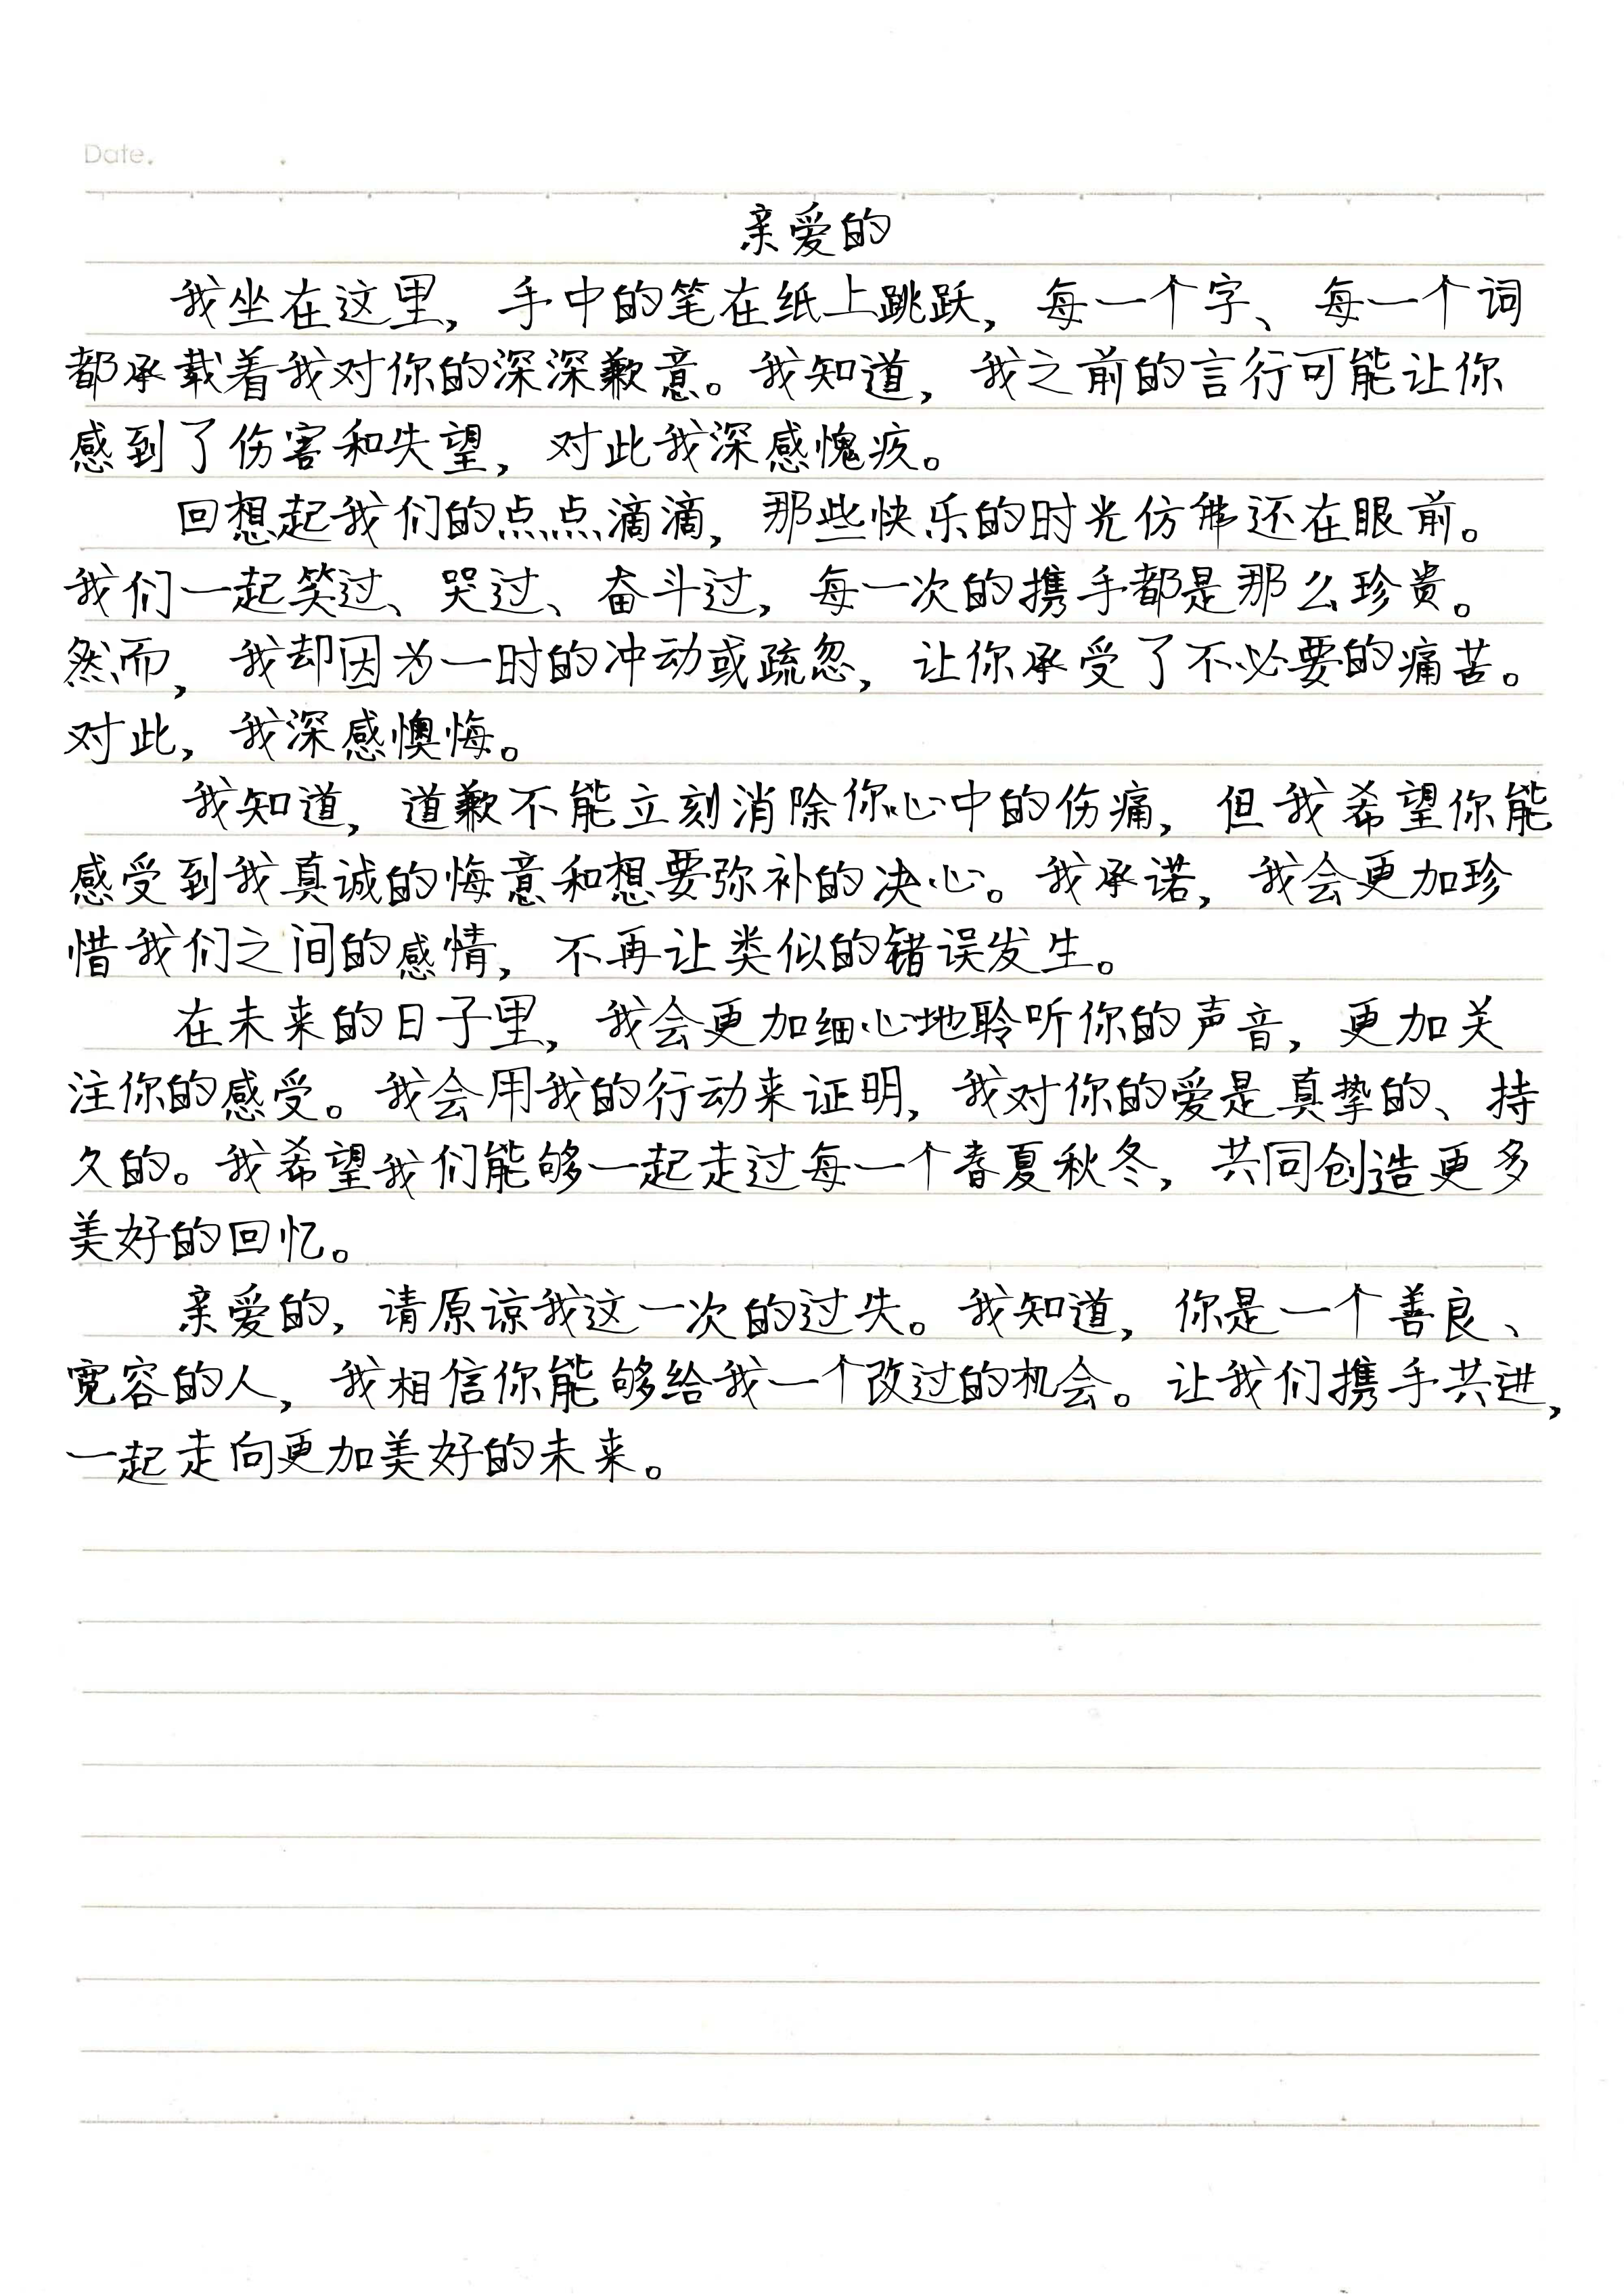 Date.
亲爱的
我坐在这里，手中的笔在纸上跳跃，每一个字、每一个词
都承载着我对你的深深歉意。我知道，我之前的言行可能让你
感到了伤害和失望，对此我深感愧疚。
回想起我们的点点滴滴，那些快乐的时光仿佛还在眼前。
我们一起笑过、哭过、奋斗过，每一次的携手都是那么珍贵。
然而，我却因为一时的冲动或疏忽，让你承受了不必要的痛苦。
对此，我深感懊悔。
我知道，道歉不能立刻消除你心中的伤痛，但我希望你能
感受到我真诚的悔意和想要弥补的决心。我承诺，我会更加珍
惜我们之间的感情，不再让类似的错误发生。
在未来的日子里，我会更加细心地聆听你的声音，更加关
注你的感受。我会用我的行动来证明，我对你的爱是真挚的、持
久的。我希望我们能够一起走过每一个春夏秋冬，共同创造更多
美好的回忆。
亲爱的，请原谅我这一次的过失。我知道，你是一个善良、
宽容的人，我相信你能够给我一个改过的机会。让我们携手共进，
一起走向更加美好的未来。